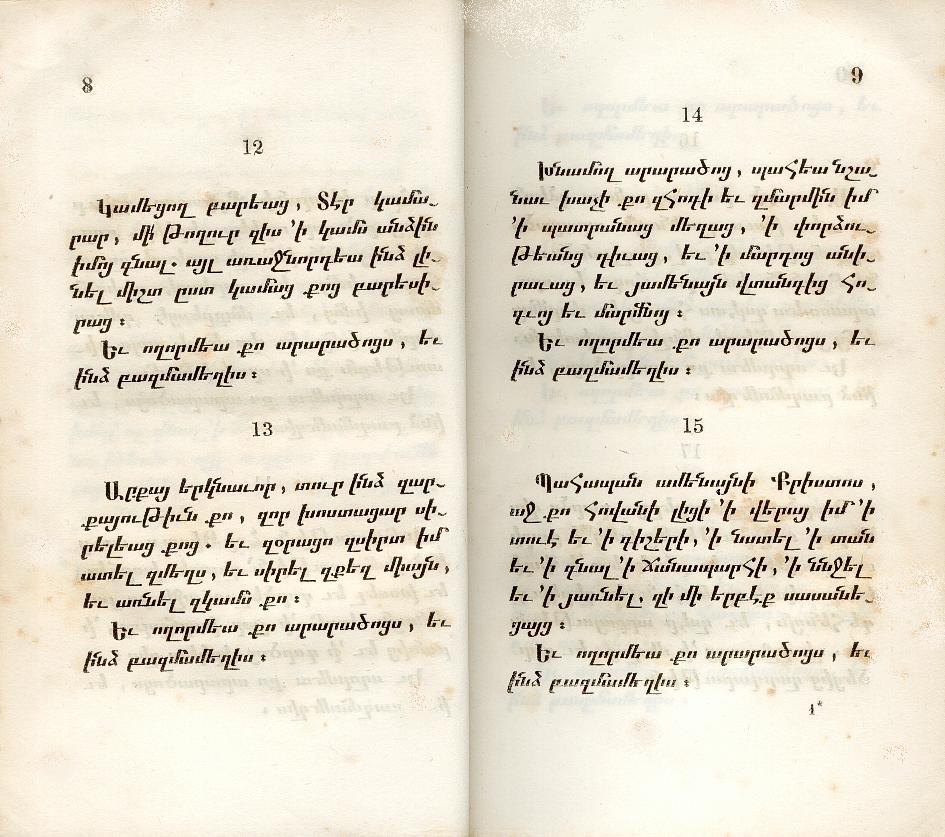 8
12
Կամեցող բարեաց, Տէր կամա֊
րար, մի թողուր զիս ՚ի կամս անձին
իմոյ գնալ. այլ առաջնորդեա ինձ լի֊
նել միշտ ըստ կամաց քոց բարեսի֊
րաց։
Եւ ողորմեա քո արարածոցս, եւ
ինձ բազմամեղիս։
13
Արքայ երկնաւոր, տուր ինձ զար֊
քայութիւն քո, զոր խոստացար սի֊
րելեաց քոց. եւ զօրացո զսիրտ իմ
ատել զմեղս, եւ սիրել զքեզ միայն,
եւ առնել զկամս քո։
Եւ ողորմեա քո արարածոցս, եւ
ինձ բազմամեղիս։
9
14
Խնամող արարածոց, պահեա նշա֊
նաւ խաչի քո զհոգի եւ զմարմին իմ
՚ի պատրանաց մեղաց, ՚ի փորձու֊
թեանց դիւաց, եւ ՚ի մարդոց անի֊
րաւաց, եւ յամենայն վտանգից հո֊
գւոյ եւ մարմնոյ։
Եւ ողորմեա քո արարածոցս, եւ
ինձ բազմամեղիս։
15
Պահապան ամենայնի Քրիստոս,
աջ քո հովանի լիցի ՚ի վերայ իմ ՚ի
տուէ եւ ՚ի գիշերի, ՚ի նստել ՚ի տան
եւ ՚ի գնալ ՚ի ճանապարհի, ՚ի ննջել
եւ ՚ի յառնել. զի մի երբէք սասանե֊
ցայց։
Եւ ողորմեա քո արարածոցս, եւ
ինձ բազմամեղիս։
1*